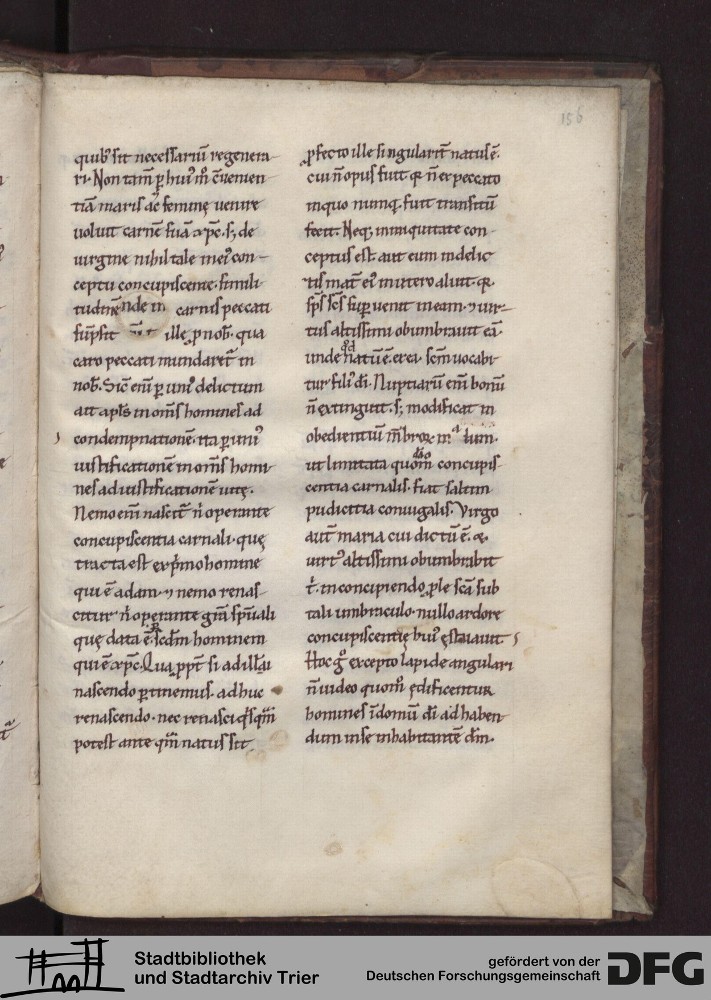 156
quib; sit necessariū regenera-
ri. Non tam̄ ꝑ hui᷒m̊ cōuenien-
tiā maris ac feminę uenire
uoluit carnē suā xp̄c. s; de
uirgine nihil tale in ei᷒ con-
ceptu concupiscente. simili-
tudinē inde in carnis peccati
sūpsit ille ꝓ nob᷒. qua
caro peccati mundaret᷑ in
nob᷒. Sic̄ eni᷒ ꝑ uni᷒ delictum
ait apl̄s in om̄s homines ad
condempnationē. ita ꝑ uni᷒
iustificationē in om̄s homi-
nes ad iustificationē uitę.
Nemo eni᷒ nascit᷑ n̄ operante
concupiscentia carnali. quę
tracta est ex p̄mo homine
qui ē adam. ⁊ nemo renas-
citur n̄ operante gr̄a sp̄uali
quę data ē ꝑ sc̄dm hominem
qui ē xp̄c. Qua ꝓpt᷑ si ad illū
nascendo ꝑtinemus. ad hunc
renascendo. nec renasci q̇sqm̄
potest ante qm̄ natus sit
ꝓfecto ille singularit᷑ natus ē.
cui n̄ opus fuit q̄ n̄ er peccato
in quo numq̄ fuit transitū
fecit. Neq; in iniquitate con-
ceptus est. aut eum in delic-
tis mat᷑ ei᷒ in utero aluit. q̄
sp̄s sc̄s suꝑuenit in eam. ⁊ uir-
tus altissimi obumbrauit eā.
unde qd natū ē. ex ea. sc̄m uocabi
tur fili᷒ di̅. Nuptiarū eni᷒ bonū
n̄ extinguit. s; modificat in
obedientiū m̄broꝝ malum.
ut limitata quodāmo concupis-
centia carnalis. fiat saltim
pudicitia coniugalis. Virgo
aut̄ maria cui dictū ē. &
uirt᷒ altissimi obumbrabit
t̄. in concipiendo ꝓle sc̄a sub
tali umbraculo. nullo ardore
concupiscentię hui᷒ ęstuauit
Hoc g̊ excepto lapide angulari
n̄ uideo quom̊ ędificentur
homines ī domū di̅ ad haben
dum in se inhabitantē dm̄.
Stadtbibliothek
und Stadtarchiv Trier
gefördert von der
Deutschen Forschungsgemeinschaft
DFG